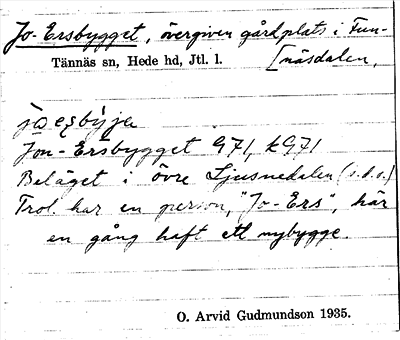 Jo-Ersbygget, övergiven gårdplats i Fun-
Tännäs sn, Hede hd, Jtl. l. [näsdalen,
Jon-Ersbygget G71, kG71
Beläget i övre Ljusnedalen (s.d.s.)
Trol. har en person, "Jo-Ers", här
en gång haft ett nybygge.
O. Arvid Gudmundson 1935.